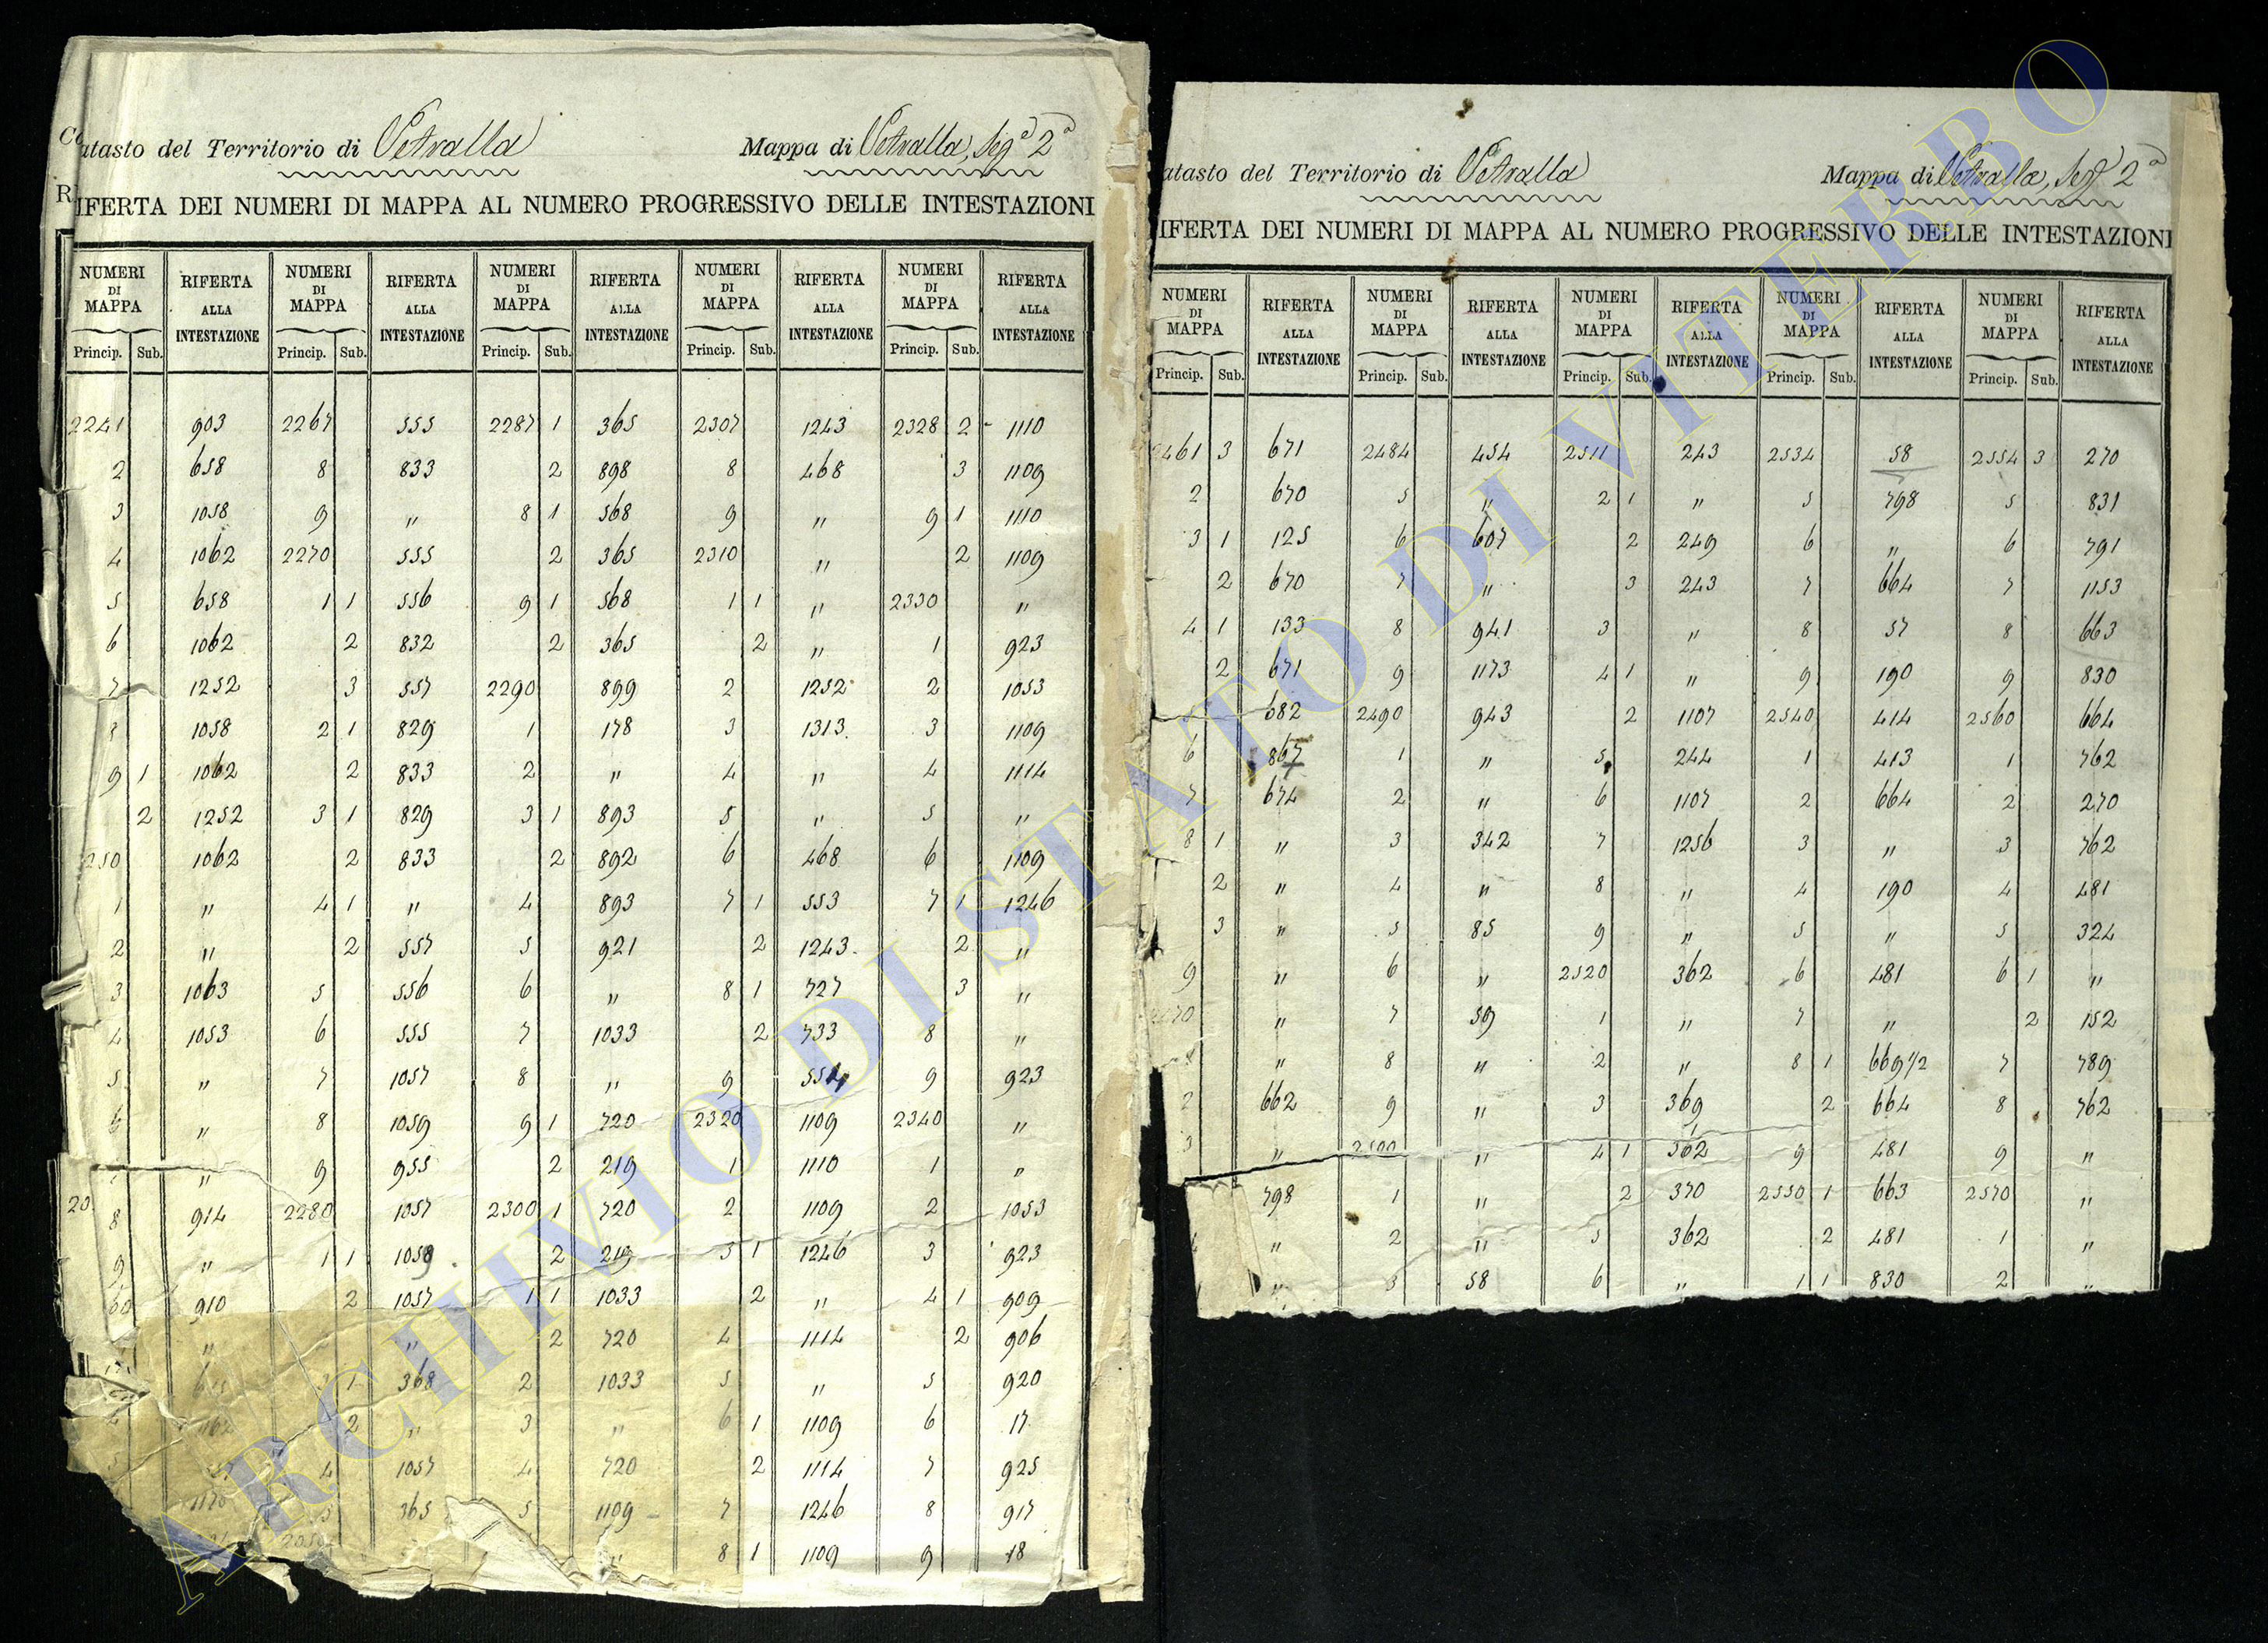 Catasto del Territorio di Vetralla Mappa di Vetralla, Sez.e 2a
RIFERTA DEI NUMERI DI MAPPA AL NUMERO PROGRESSIVO DELLE INTESTAZIONI
NUMERI DI MAPPA RIFERTA ALLA INTESTAZIONE NUMERI DI MAPPA RIFERTA ALLA INTESTAZIONE NUMERI DI MAPPA RIFERTA ALLA INTESTAZIONE NUMERI DI MAPPA RIFERTA ALLA INTESTAZIONE NUMERI DI MAPPA RIFERTA ALLA INTESTAZIONE
Princip. Sub. Princip. Sub. Princip. Sub. Princip. Sub. Princip. Sub.
2241 903 2267 555 2287 1 365 2307 1243 2328 2 1110
2 658 8 833 2 898 8 468 3 1109
3 1058 9 " 8 1 568 9 " 9 1 1110
4 1062 2270 555 2 365 2310 " 2 1109
5 658 1 1 556 9 1 568 1 1 " 2330 "
6 1062 2 832 2 365 2 " 1 923
7 1252 3 557 2290 899 2 1252 2 1053
8 1058 2 1 829 1 178 3 1313 3 1109
9 1 1062 2 833 2 " 4 " 4 1114
2 1252 3 1 829 3 1 893 5 " 5 "
250 1062 2 833 2 892 6 468 6 1109
1 " 4 1 " 4 893 7 1 553 7 1 1246
2 " 2 557 5 921 2 1243 2 "
3 1063 5 556 6 " 8 1 727 3 "
4 1053 6 555 7 1033 2 733 8 "
5 " 7 1057 8 " 9 554 9 923
6 " 8 1059 9 1 720 2320 1109 2340 "
" 9 955 2 219 1 1110 1 "
8 914 2280 1057 2300 1 720 2 1109 2 1053
9 " 1 1 1059 2 219 3 1 1246 3 923
60 910 2 1057 1 1 1033 2 " 4 1 909
" " 2 720 4 1114 2 906
1 368 2 1033 5 " 5 920
4 2 " 3 " 6 1 1109 6 17
4 1057 4 720 2 1114 7 925
5 365 5 1109 7 1246 8 917
" 8 1 1109 9 18
atasto del Territorio di Vetralla Mappa di Vetralla, Sez.e 2a
IFERTA DEI NUMERI DI MAPPA AL NUMERO PROGRESSIVO DELLE INTESTAZIONI
NUMERI DI MAPPA RIFERTA ALLA INTESTAZIONE NUMERI DI MAPPA RIFERTA ALLA INTESTAZIONE NUMERI DI MAPPA RIFERTA ALLA INTESTAZIONE NUMERI DI MAPPA RIFERTA ALLA INTESTAZIONE NUMERI DI MAPPA RIFERTA ALLA INTESTAZIONE
Princip. Sub. Princip. Sub. Princip. Sub. Princip. Sub. Princip. Sub.
2461 3 671 2484 454 2511 243 2534 58 2554 3 270
2 670 5 " 2 1 " 5 798 5 831
3 1 125 6 607 2 249 6 " 6 791
2 670 7 " 3 243 7 664 7 1153
4 1 133 8 941 3 " 8 57 8 663
2 671 9 1173 4 1 " 9 190 9 830
682 2490 943 2 1107 2540 414 2560 664
6 867 1 " 5 244 1 413 1 762
7 674 2 " 6 1107 2 664 2 270
8 1 " 3 342 7 1256 3 " 3 762
2 " 4 " 8 " 4 190 4 481
3 " 5 85 9 " 5 " 5 324
9 " 6 " 2520 362 6 481 6 1 "
70 " 7 59 1 " 7 " 2 152
" 8 " 2 " 8 1 669 1/2 7 789
2 662 9 " 3 369 2 664 8 762
3 " 2500 " 4 1 362 9 481 9 "
798 1 " 2 370 2550 1 663 2570 "
" 2 " 5 362 2 481 1 "
" 3 58 6 " 1 1 830 2 "
ARCHIVIO DI STATO DI VITERBO